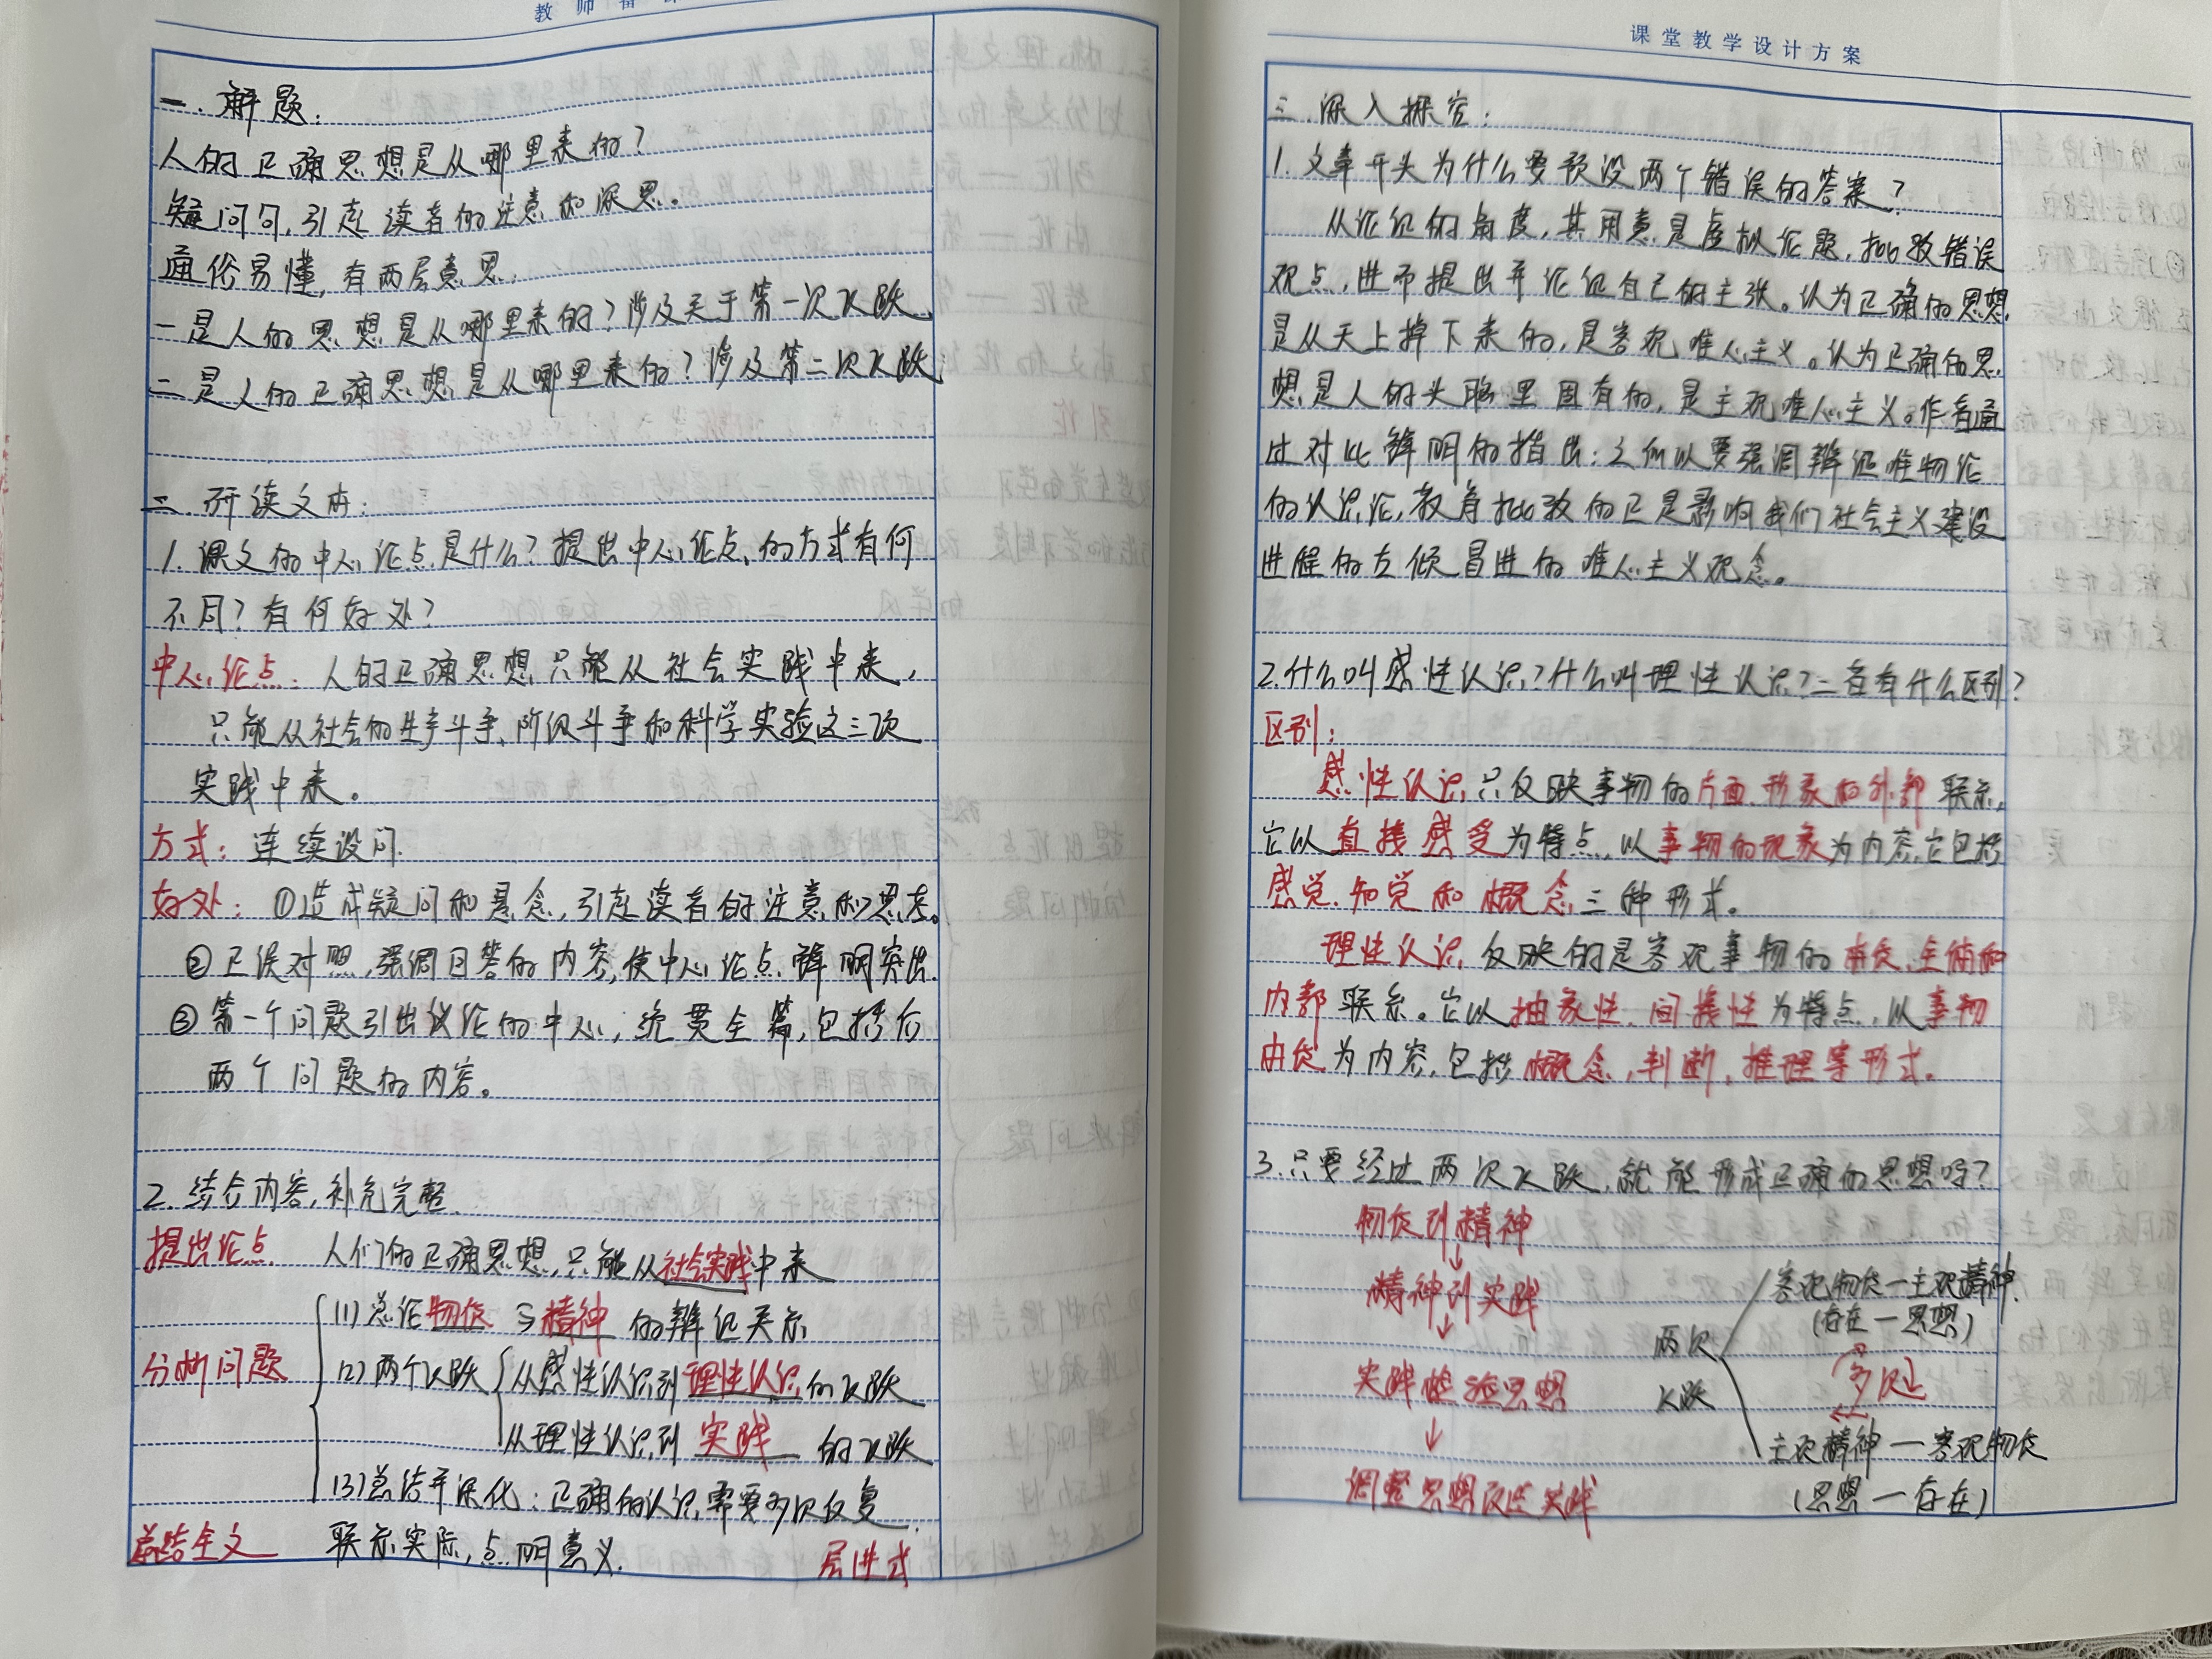 教师备课
一.解题:
人的正确思想是从哪里来的?
疑问句,引起读者的注意和深思。
通俗易懂,有两层意思:
一是人的思想是从哪里来的?涉及关于第一次飞跃,
二是人的正确思想是从哪里来的?涉及第二次飞跃;
二.研读文本:
1.课文的中心论点是什么?提出中心论点的方式有何
不同?有何好处?
中心论点:人的正确思想只能从社会实践中来,
只能从社会的生产斗争、阶级斗争和科学实验这三项
实践中来。
方式:连续设问.
好处:①造成疑问和悬念,引起读者的注意和思考。
②正误对照,强调回答的内容,使中心论点鲜明突出.
③第一个问题引出议论的中心,统贯全篇,包括后
两个问题的内容。
2.结合内容,补充完整.
提出论点 人们的正确思想,只能从社会实践中来
分析问题
(1)总论物质与精神的辩证关系
(2)两个飞跃
从感性认识到理性认识的飞跃
从理性认识到实践的飞跃
(3)总结并深化:正确的认识需要多次反复.
总结全文 联系实际,点明意义. 层进式
课堂教学设计方案
三.深入探究:
1.文章开头为什么要预设两个错误的答案?
从论证的角度,其用意是虚拟论题,批驳错误
观点,进而提出并论证自己的主张。认为正确的思想
是从天上掉下来的,是客观唯心主义。认为正确的思
想是人的头脑里固有的,是主观唯心主义。作者通
过对比鲜明的指出:之所以要强调辩证唯物论
的认识论,教育批驳的正是影响我们社会主义建设
进程的左倾冒进的唯心主义观念。
2.什么叫感性认识?什么叫理性认识?二者有什么区别?
区别:
感性认识只反映事物的片面、形象和外部联系,
它以直接感受为特点,以事物的现象为内容,它包括
感觉.知觉和概念三种形式。
理性认识反映的是客观事物的本质、全体和
内部联系。它以抽象性、间接性为特点,以事物
本质为内容,包括概念,判断,推理等形式。
3.只要经过两次飞跃,就能形成正确的思想吗?
物质到精神
↓
精神到实践
↓
实践检验思想
↓
调整思想改进实践
两次
飞跃
客观物质—主观精神.
(存在—思想)
多次
主观精神—客观物质
(思想—存在)